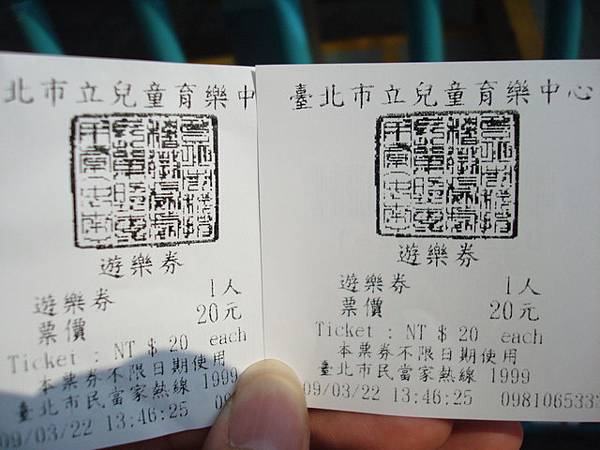 北市立兒童育樂中
遊樂券
遊樂券 1人
票價 20元
Ticket : NT $ 20 each
本票券不限日期使用
臺北市民當家熱線 1999
09/03/22 13:46:25
臺北市立兒童育樂中心
遊樂券
遊樂券 1人
票價 20元
Ticket : NT $ 20 each
本票券不限日期使用
臺北市民當家熱線 1999
09/03/22 13:46:25 098106533